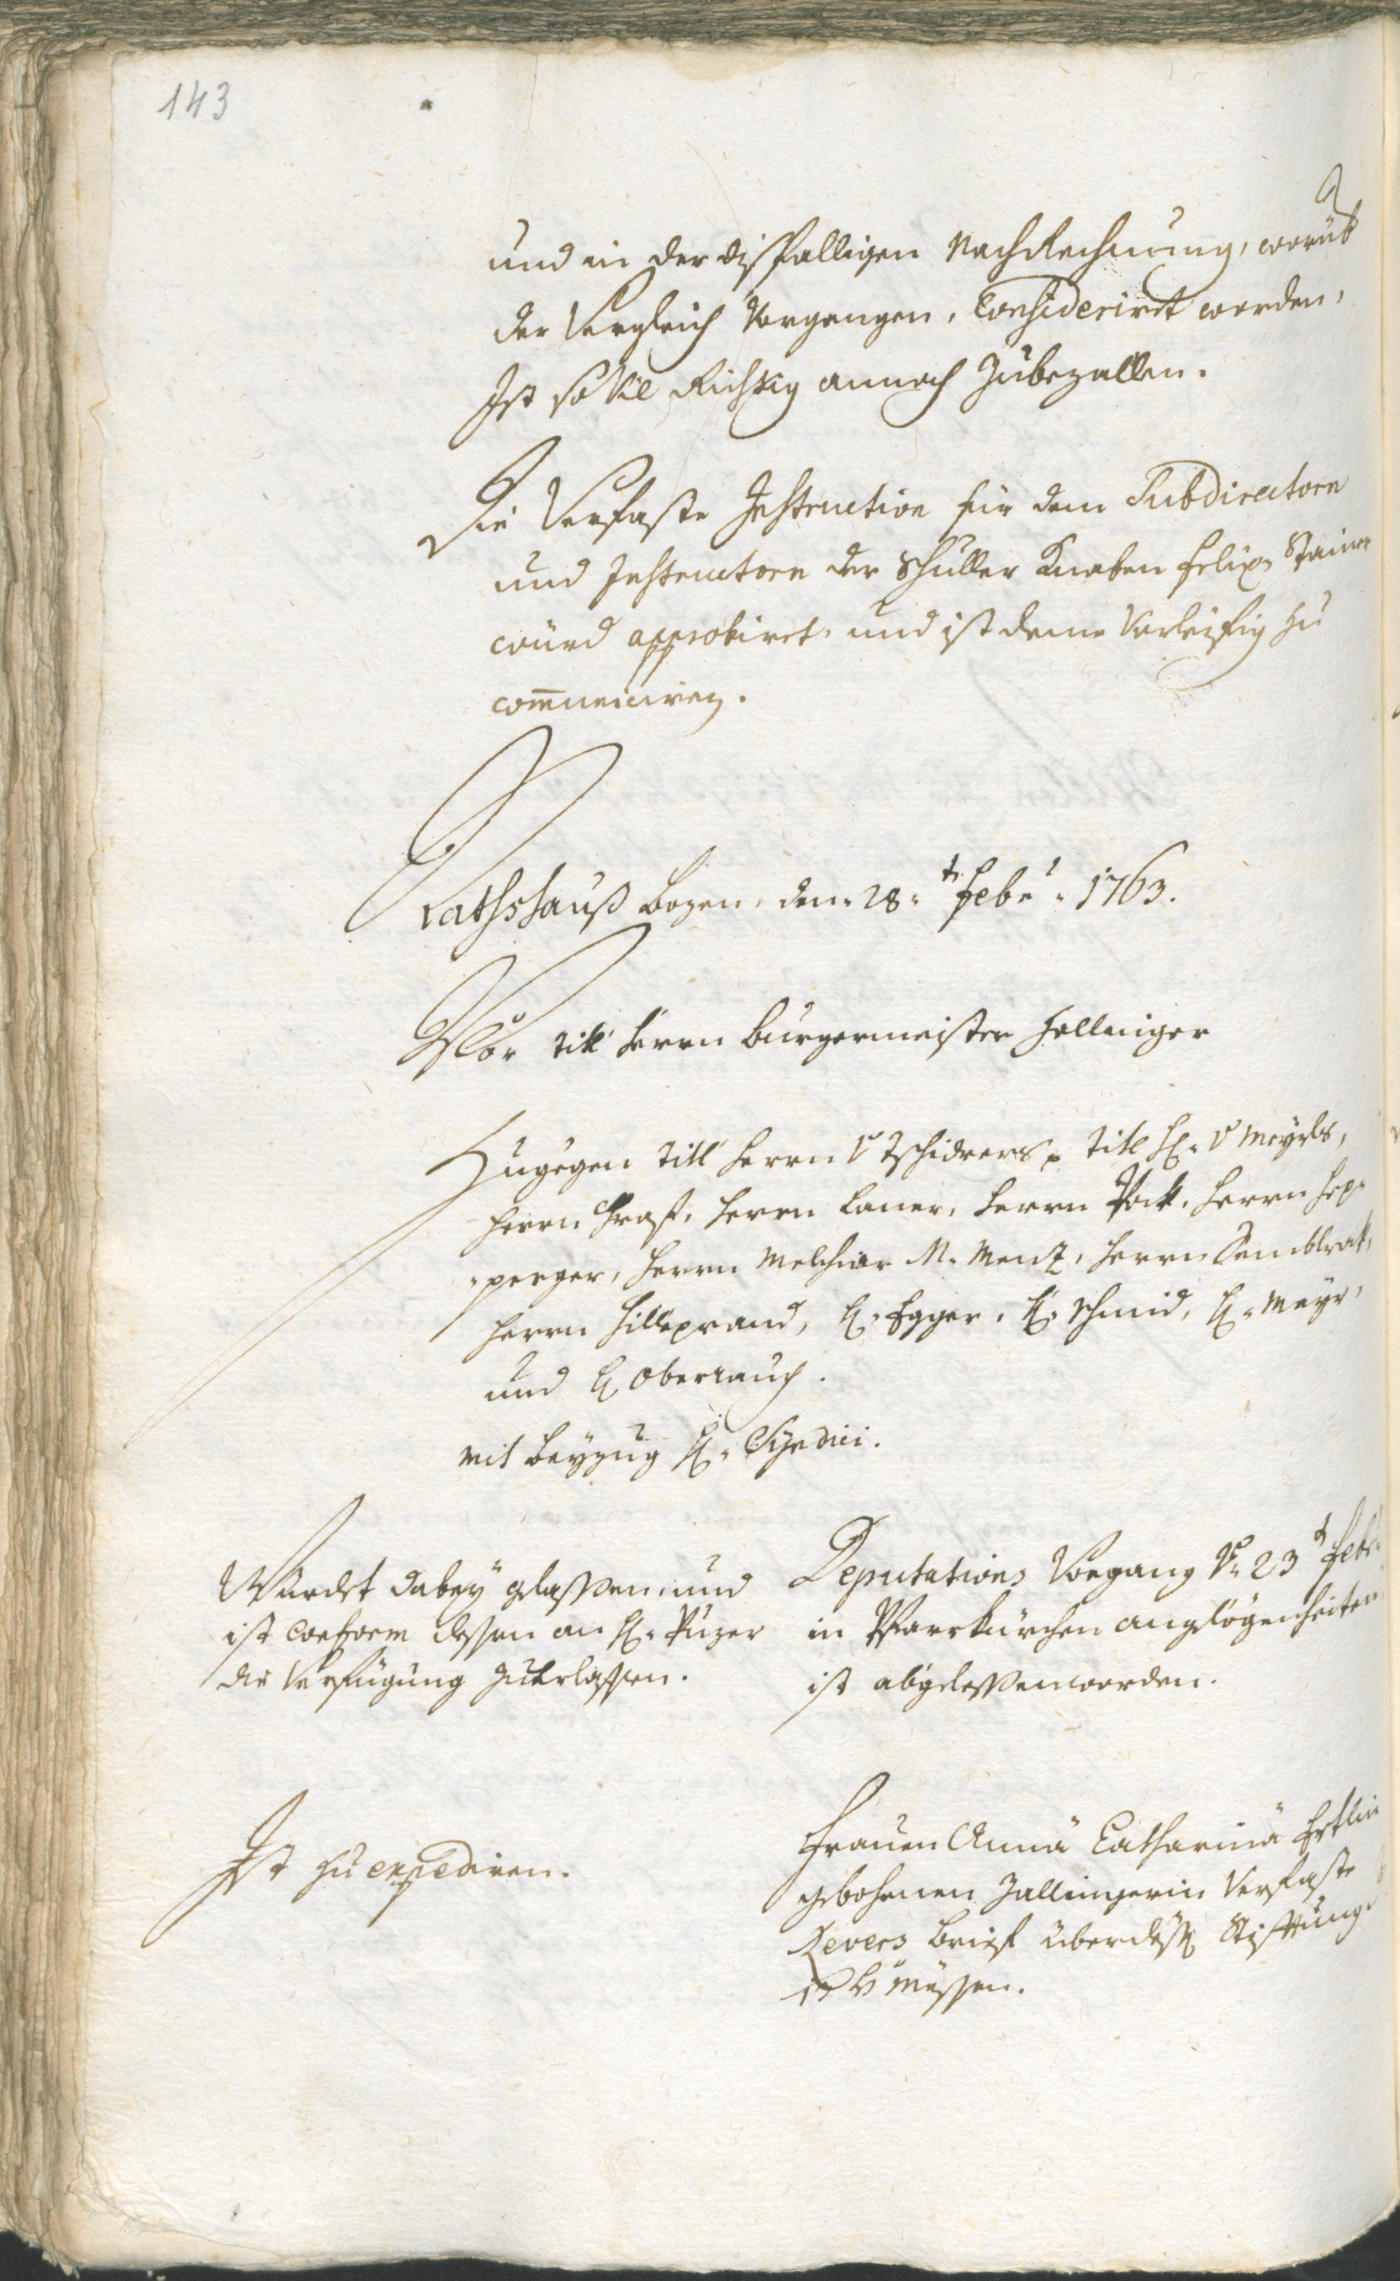 143
und in der dißfalligen Nachrechnung, worüb
der Verglaich vorgangen, Consideriret worden,
Ist so vil Richtig annoch Zubezallen.
Die Verfaste Instruction für dem Subdirectorn
und Instructorn der Schuller Knaben Felix Stainer
würd approbiret, und ist deme Verläsig zu
com̅uniciren.
Rathshauß Bozen, den 28.ten Febr. 1763.
Vor titl Herrn Burgermeister Hollinger
Zugegen titl Herrn v Tschiderer, titl H. v Mayrls,
Herrn Grast, Herrn Laner, Herrn Pock, Herrn Hep=
=perger, Herrn Melchior M. Menz, Herrn Semblrock,
Herrn Hilleprand, H. Egger, H. Schmid, H. Mayr,
und H. Oberrauch.
mit Beyzug H. Syndici.
Deputations Vorgang v. 23.t Febr.
in Pfarrkürchen angelögenheiten
ist abgelessen worden.
Würdet dabey glassen, und
ist conform dessen an H. Puzer
die Verfügung zuerlassen.
Frauen Anna Catharina Ertlin
gebohrnen Zallingerin Verfaste
Revers Brief über dess Stifftung
Messen.
Ist zu expediren.